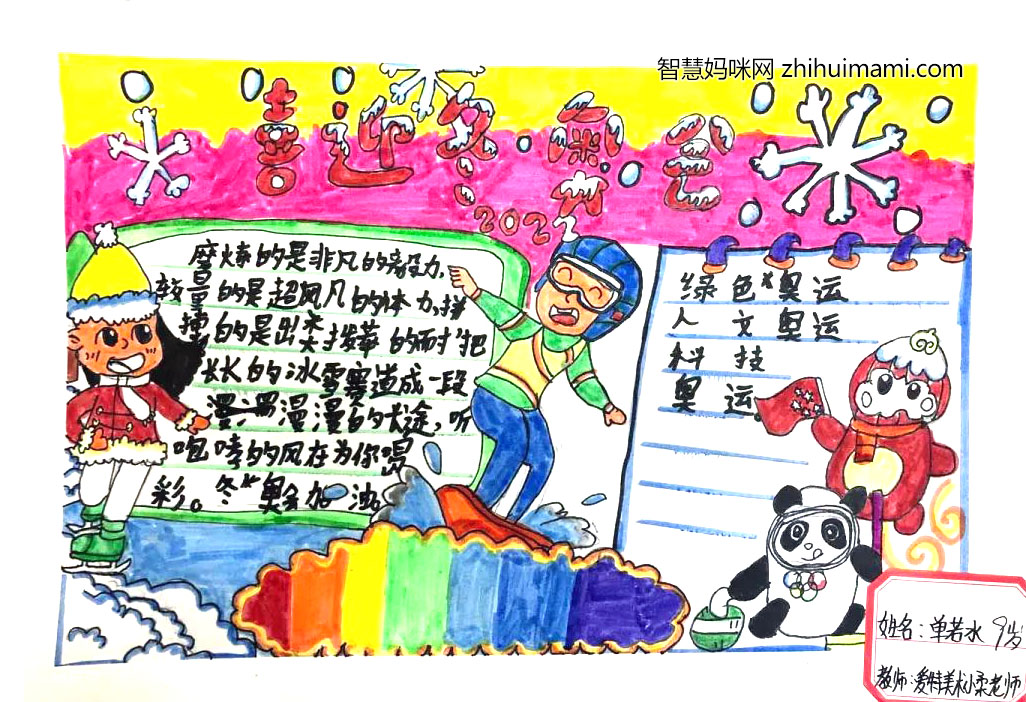 智慧妈咪网 zhihuimami.com
喜迎冬奥会
2022
磨炼的是非凡的毅力,
较量的是超凡的体力,拼
搏的是出类拔萃的耐
把长长的冰雪赛道成一段
漫漫的长途,听
咆哮的风在为你喝
彩。冬奥会加油
绿色奥运
人文奥运
科技
奥运
姓名:单若水 9岁
教师:爱特美术小柔老师